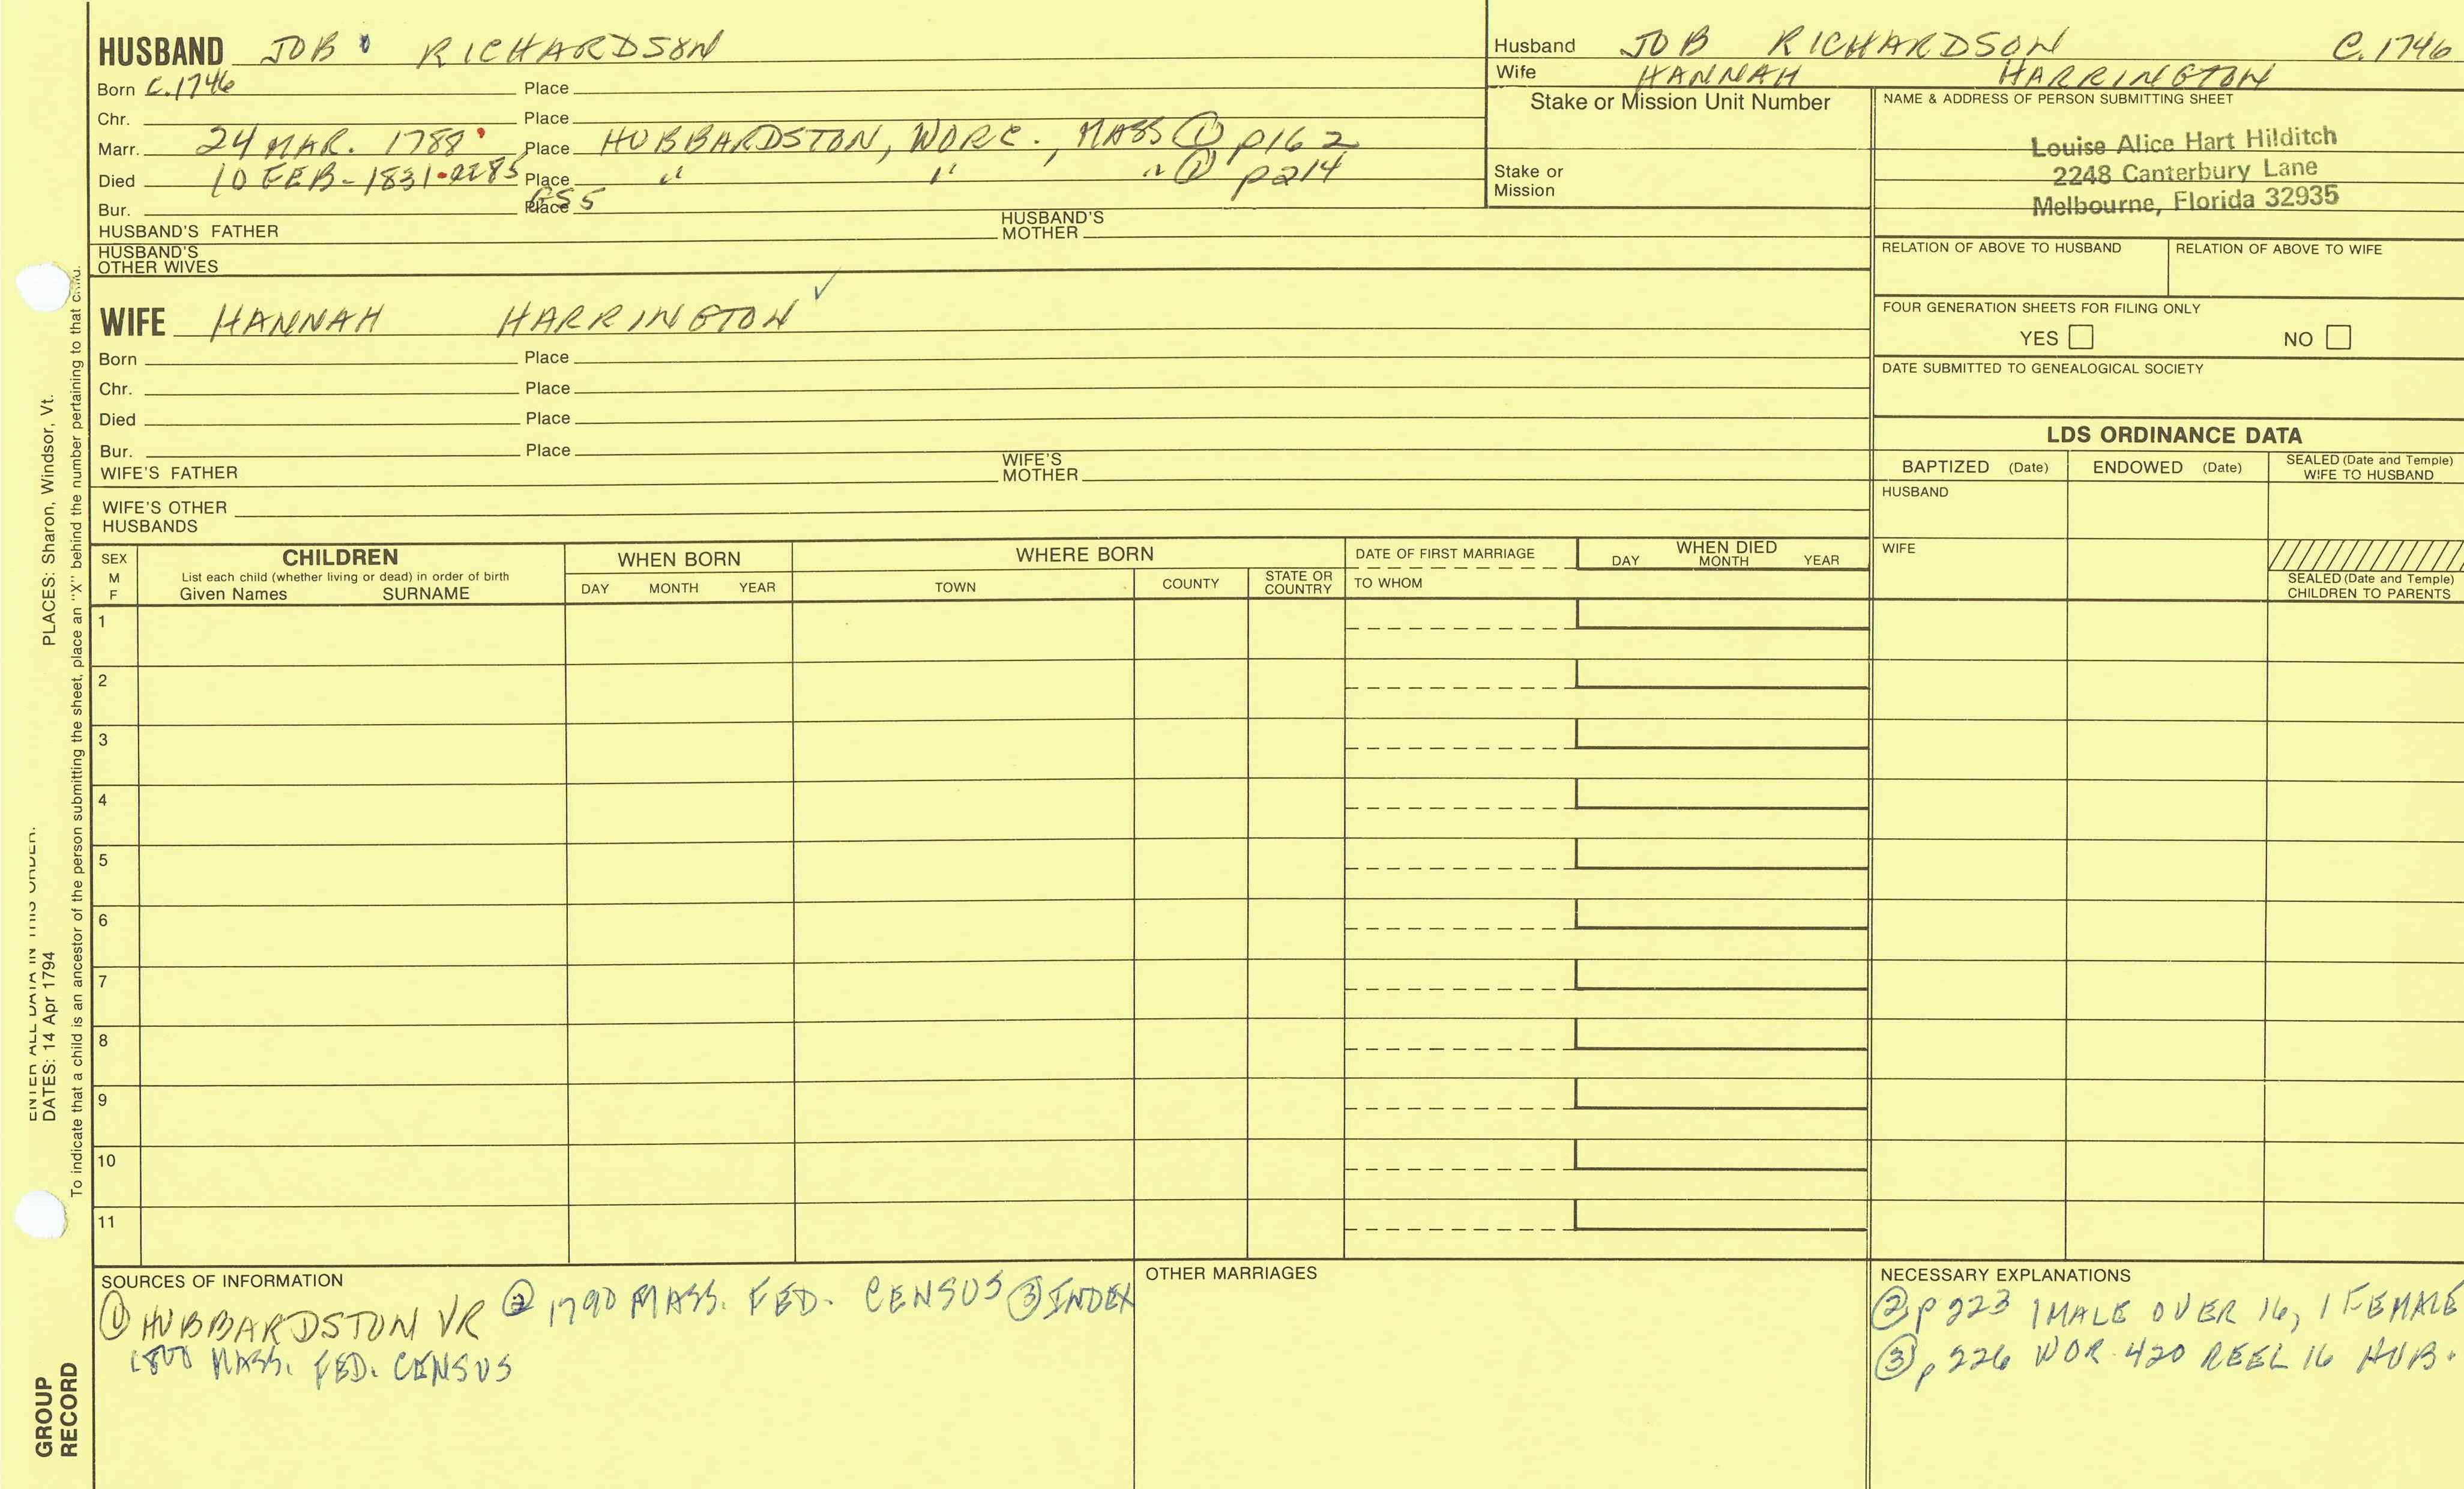 HUSBAND JOB RICHARDSON
Born C.1746 Place
Chr. Place
Marr. 24 MAR. 1788 Place HUBBARDSTON, WORC., MASS ① p162
Died 10 FEB-1831 Place " " " ① p214
Bur. Place
HUSBAND'S FATHER HUSBAND'S MOTHER
HUSBAND'S OTHER WIVES
WIFE HANNAH HARRINGTON ✓
Born Place
Chr. Place
Died Place
Bur. Place
WIFE'S FATHER WIFE'S MOTHER
WIFE'S OTHER HUSBANDS
Husband JOB RICHARDSON C.1746
Wife HANNAH HARRINGTON
Stake or Mission Unit Number
Stake or Mission
NAME & ADDRESS OF PERSON SUBMITTING SHEET
Louise Alice Hart Hilditch
2248 Canterbury Lane
Melbourne, Florida 32935
RELATION OF ABOVE TO HUSBAND RELATION OF ABOVE TO WIFE
FOUR GENERATION SHEETS FOR FILING ONLY
YES NO
DATE SUBMITTED TO GENEALOGICAL SOCIETY
LDS ORDINANCE DATA
BAPTIZED (Date) ENDOWED (Date) SEALED (Date and Temple) WIFE TO HUSBAND
HUSBAND
WIFE
SEALED (Date and Temple) CHILDREN TO PARENTS
SEX M F
CHILDREN
List each child (whether living or dead) in order of birth
Given Names SURNAME
WHEN BORN
DAY MONTH YEAR
WHERE BORN
TOWN COUNTY STATE OR COUNTRY
DATE OF FIRST MARRIAGE
TO WHOM
WHEN DIED
DAY MONTH YEAR
1
2
3
4
5
6
7
8
9
10
11
SOURCES OF INFORMATION
① HUBBARDSTON VR ② 1790 MASS. FED. CENSUS ③ INDEX
1800 MASS. FED. CENSUS
OTHER MARRIAGES
NECESSARY EXPLANATIONS
② p 223 1 MALE OVER 16, 1 FEMALE
③ p 226 WOR 420 REEL 16 HUB.
ENTER ALL DATA IN THIS ORDER:
DATES: 14 Apr 1794 PLACES: Sharon, Windsor, Vt.
To indicate that a child is an ancestor of the person submitting the sheet, place an "X" behind the number pertaining to that child.
GROUP RECORD